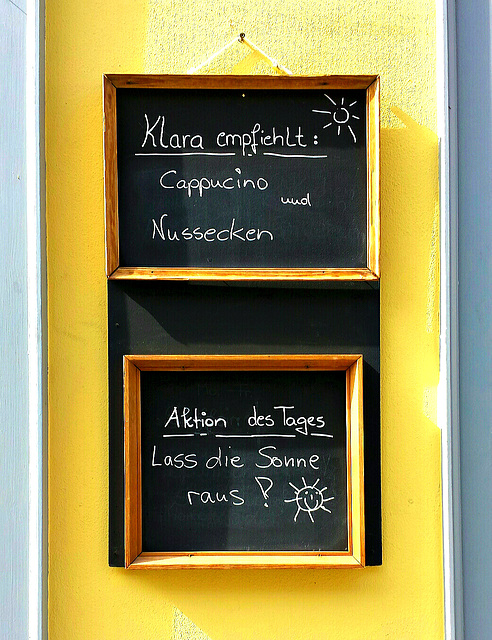 Klara empfiehlt:
Cappucino und
Nussecken
Aktion des Tages
Lass die Sonne
raus!